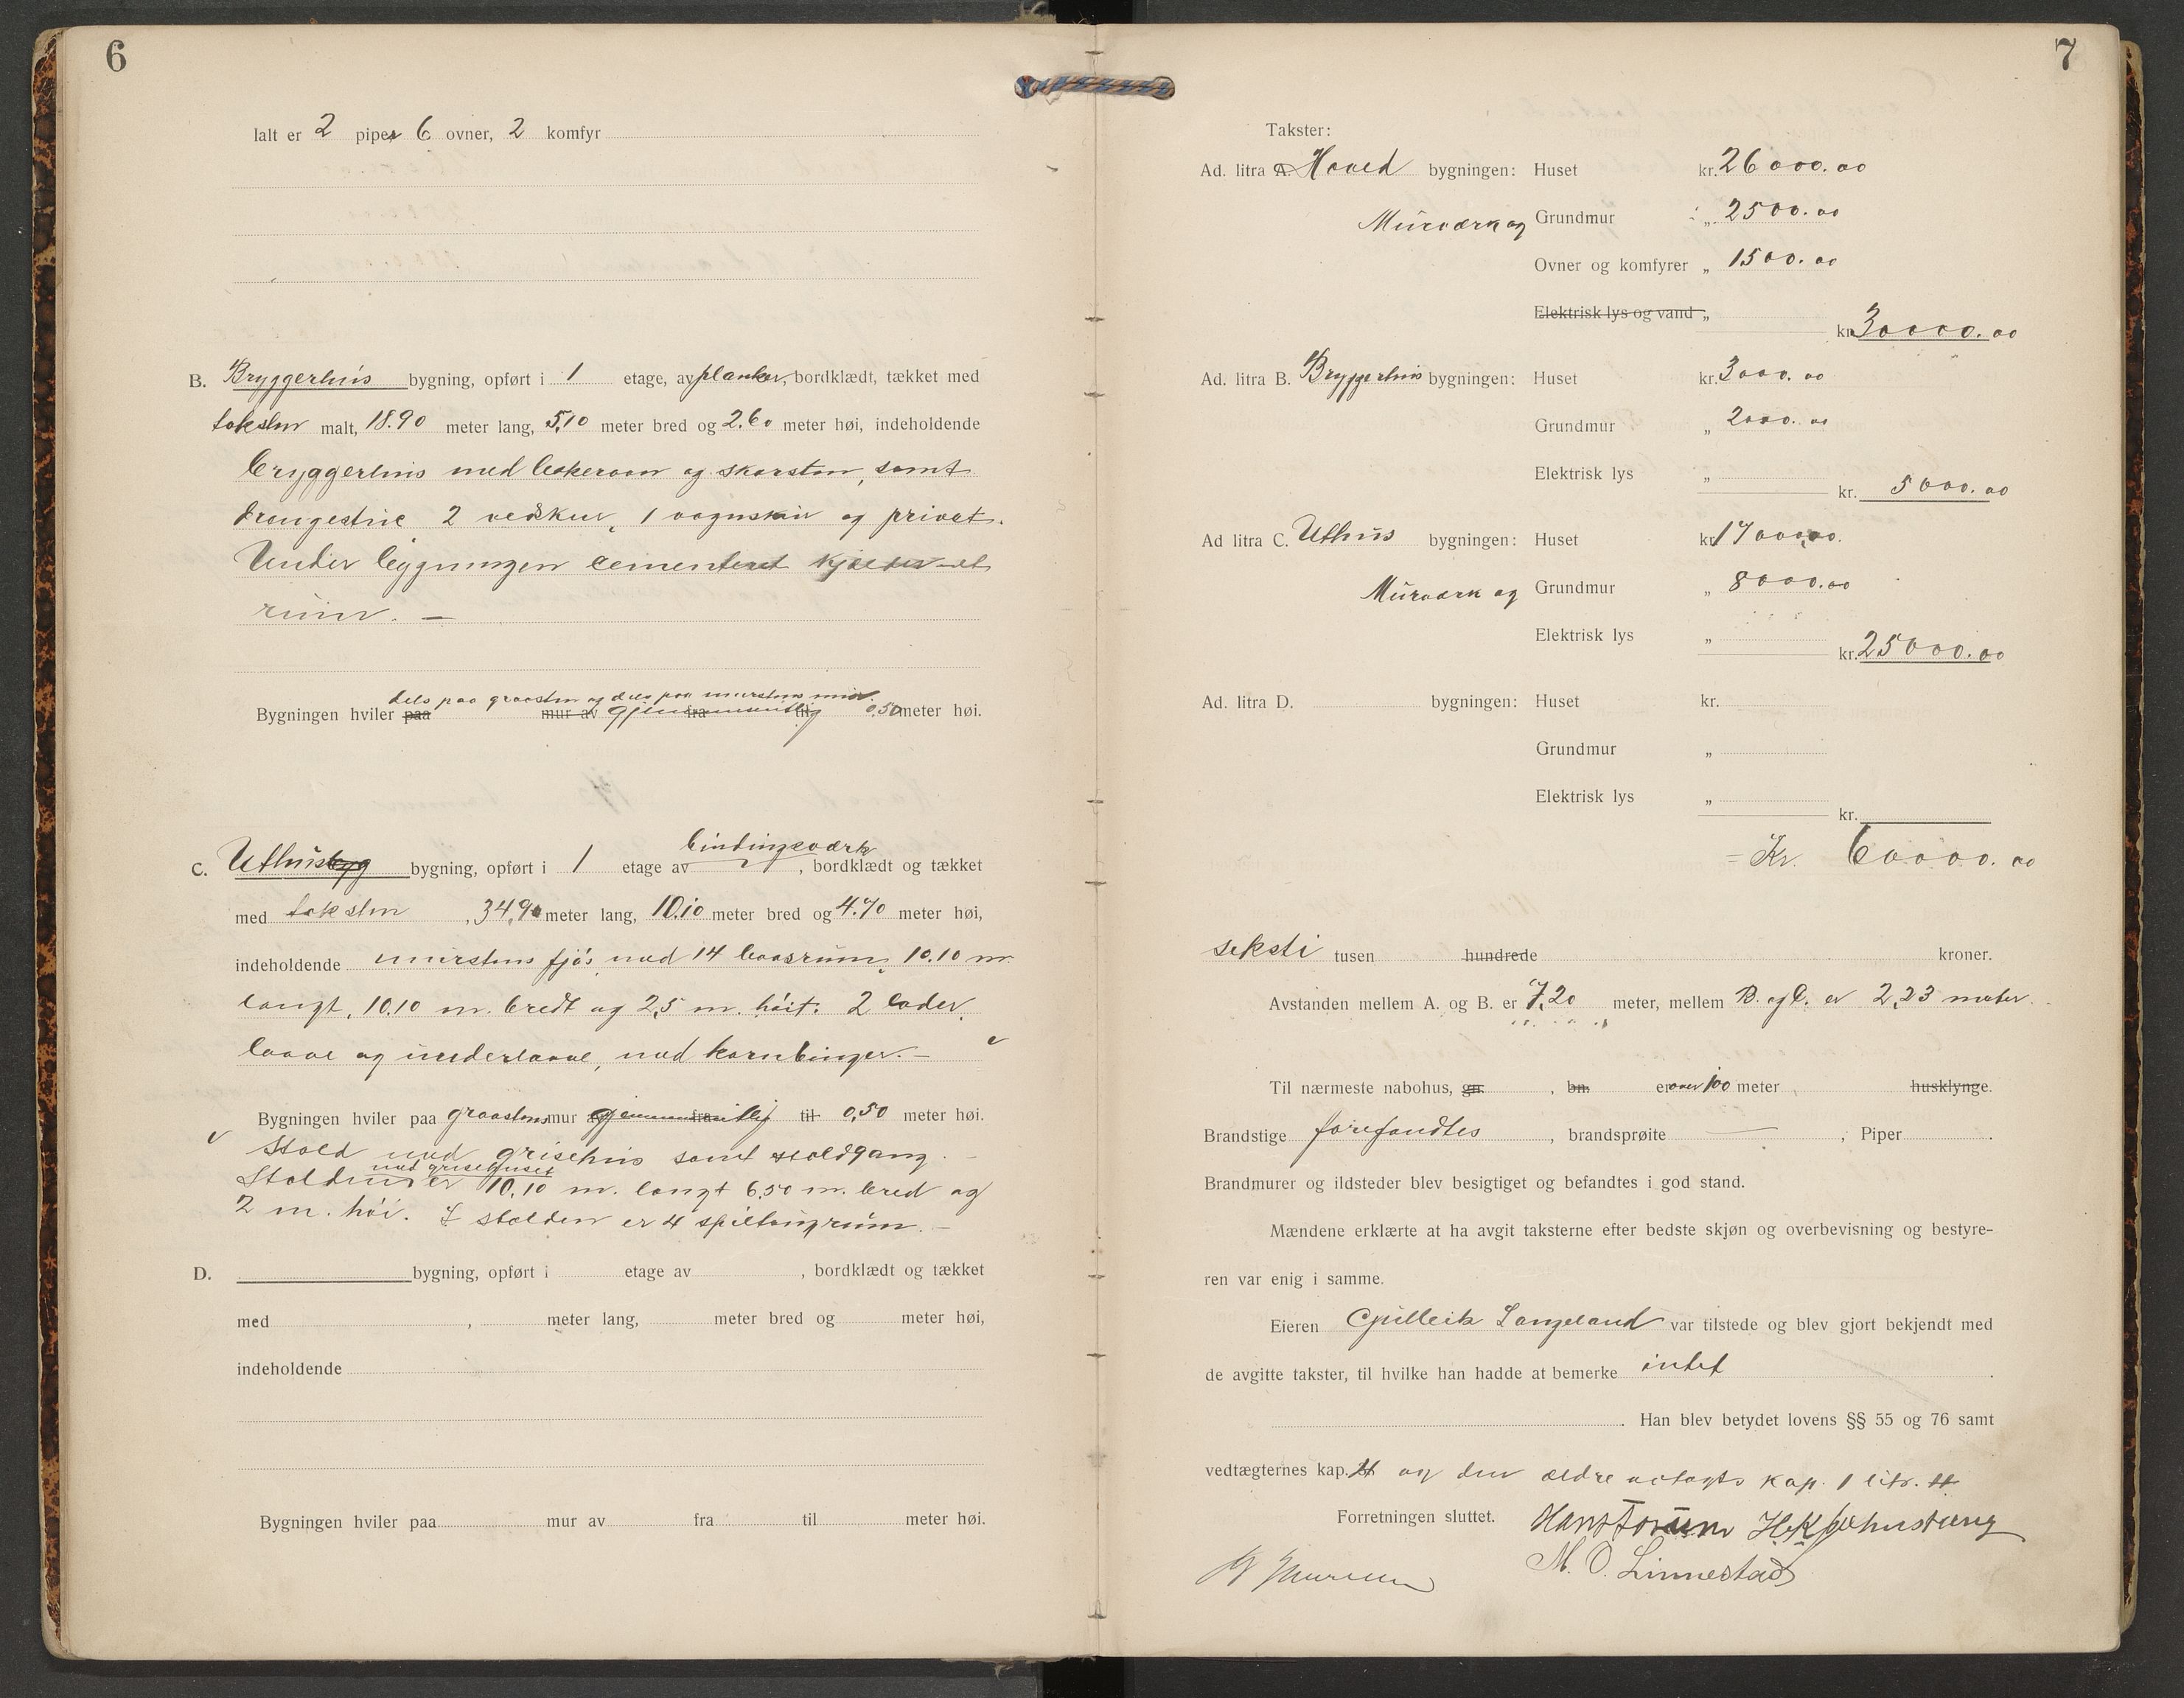 6
Ialt er 2 piper 6 ovner, 2 komfyr
B. Bryggerhus bygning, opført i 1 etage, av planker, bordklædt, tækket med
taksten malt, 18.90 meter lang, 5,10 meter bred og 2.60 meter høi, indeholdende
bryggerhus med bakerovn og skorsten, samt
drengestue 2 vedskur, 1 vognskur og privet.
Under bygningen cementeret kjelder et
rum. —
dels paa graasten og dels paa murstens mur.
Bygningen hviler paa mur av gjennemsnitlig fra til 0,50 meter høi.
C. Uthusbyg bygning, opført i 1 etage av bindingsværk, bordklædt og tækket
med taksten, 34,90 meter lang, 10.10 meter bred og 4.70 meter høi,
indeholdende murstens fjøs med 14 baasrum, 10.10 m.
langt, 10.10 m. bredt og 2,5 m. høit. 2 lader,
laave og underlaave, med kornbinger. —
Bygningen hviler paa graastens mur av gjennemsnitlig fra til 0,50 meter høi.
Stald med grisehus samt staldgang.
med grisehuset
Stalden er 10,10 m. langt 6,50 m. bred og
2 m. høi. I stalden er 4 spiltaugrum. —
D. bygning, opført i etage av , bordklædt og tækket
med , meter lang, meter bred og meter høi,
indeholdende
Bygningen hviler paa mur av fra til meter høi.
7
Takster:
Ad. litra A. Hoved bygningen: Huset kr. 26000.00
Murværk og Grundmur „ 2500.00
Ovner og komfyrer „ 1500.00
Elektrisk lys og vand „
kr. 30000.00
Ad. litra B. Bryggerhus bygningen: Huset kr. 3000.00
Grundmur „ 2000.00
Elektrisk lys „
kr. 5000.00
Ad litra C. Uthus bygningen: Huset kr. 17000.00.
Murværk og Grundmur „ 8000.00
Elektrisk lys „
kr. 25000.00
Ad. litra D. bygningen: Huset kr.
Grundmur „
Elektrisk lys „
kr.
= Kr. 60000.00
seksti tusen hundrede kroner.
Avstanden mellem A. og B. er 7,20 meter, mellem B. og C. er 2,23 meter.
Til nærmeste nabohus, gn. , bn. er over 100 meter , husklynge.
Brandstige forefandtes , brandsprøite — , Piper .
Brandmurer og ildsteder blev besigtiget og befandtes i god stand.
Mændene erklærte at ha avgit taksterne efter bedste skjøn og overbevisning og bestyre-
ren var enig i samme.
Eieren Gulleik Langeland var tilstede og blev gjort bekjendt med
de avgitte takster, til hvilke han hadde at bemerke intet .
. Han blev betydet lovens §§ 55 og 76 samt
vedtægternes kap. H og den ældre kap. 1 litr. H
Forretningen sluttet. Hans
M. O. Linnestad